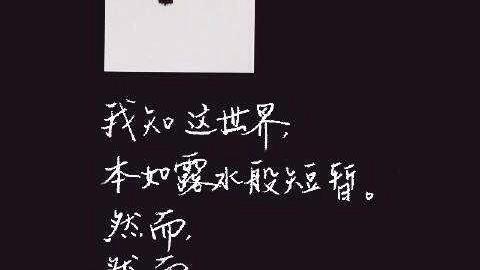 我知这世界,
本如露水般短暂。
然而,
然而